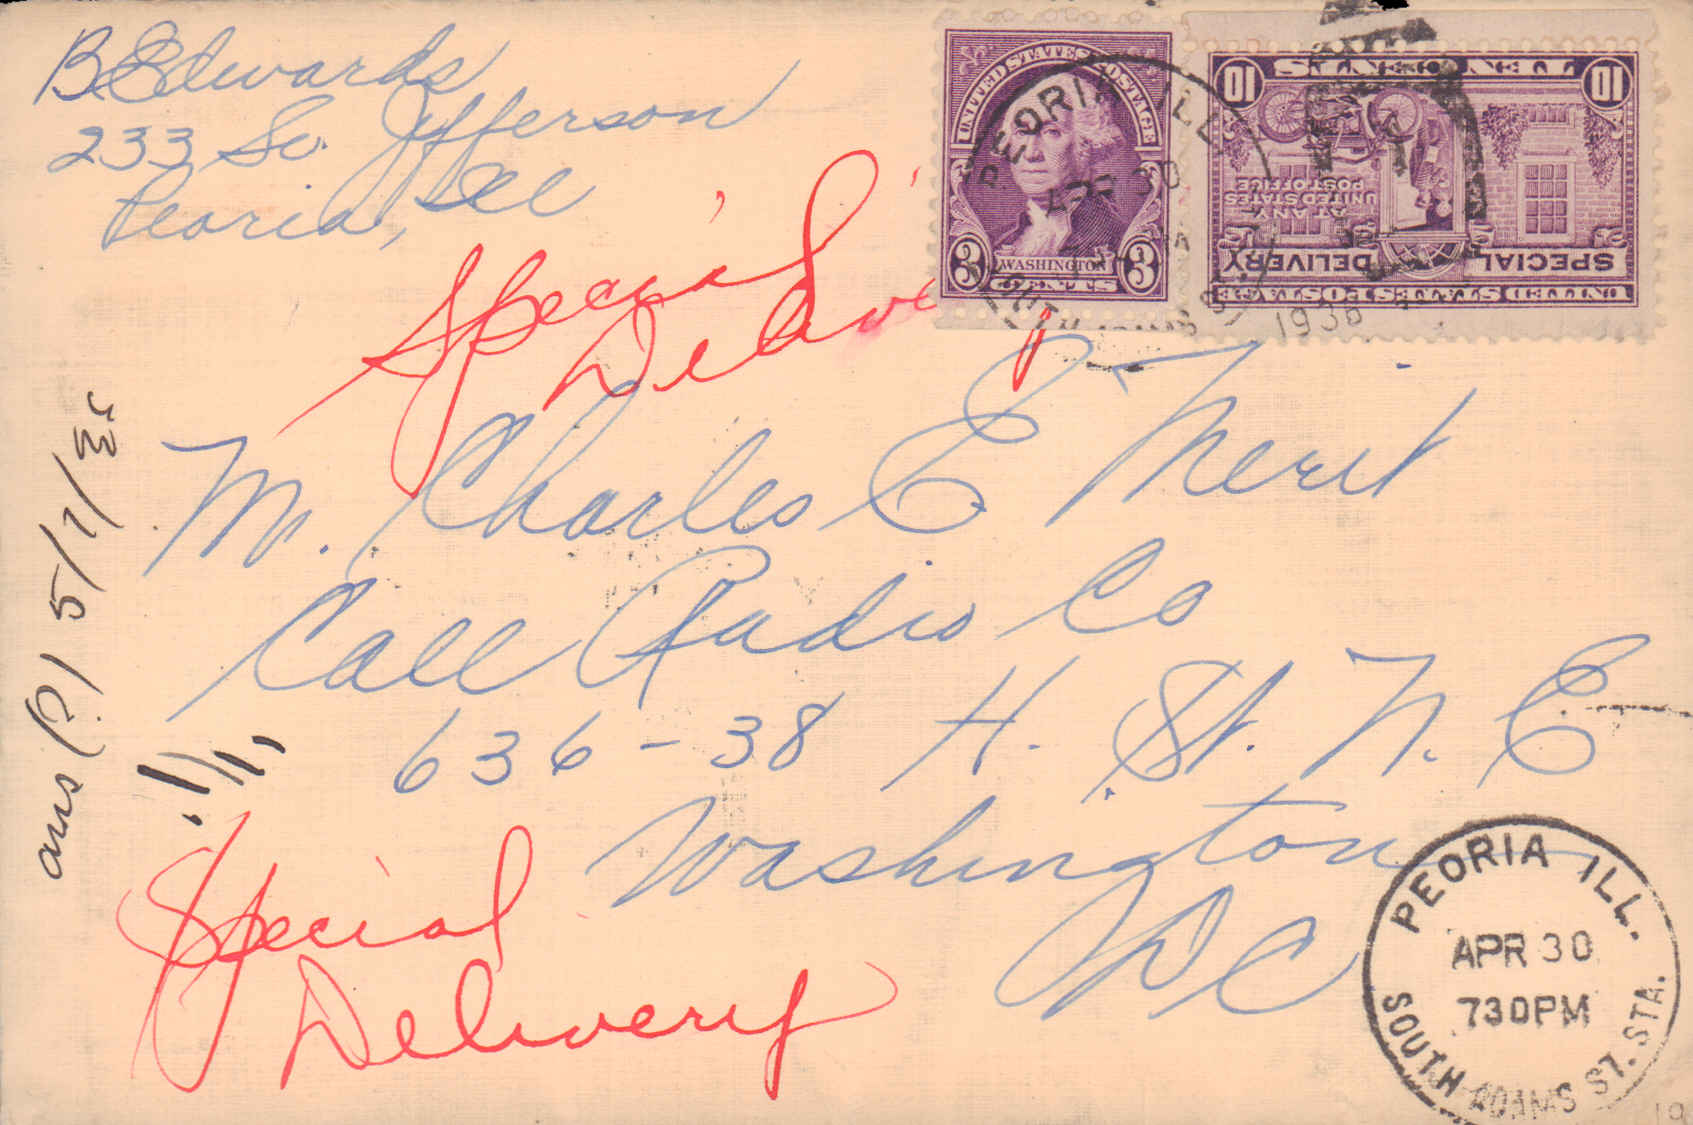 B. Edwards
233 So. Jefferson
Peoria, Ill
Special
Deliv
UNITED STATES POSTAGE
3 WASHINGTON 3
CENTS
PEORIA ILL.
APR 30
1936
10 TEN CENTS 10
AT ANY
UNITED STATES
POST OFFICE
SPECIAL DELIVERY
UNITED STATES POSTAGE
Mr. Charles E Merit
Call Radio Co
636-38 H. St. N. E
Washington
DC
ans (?) 5/1/3
Special
Delivery
PEORIA ILL.
APR 30
730PM
SOUTH ADAMS ST. STA.
19